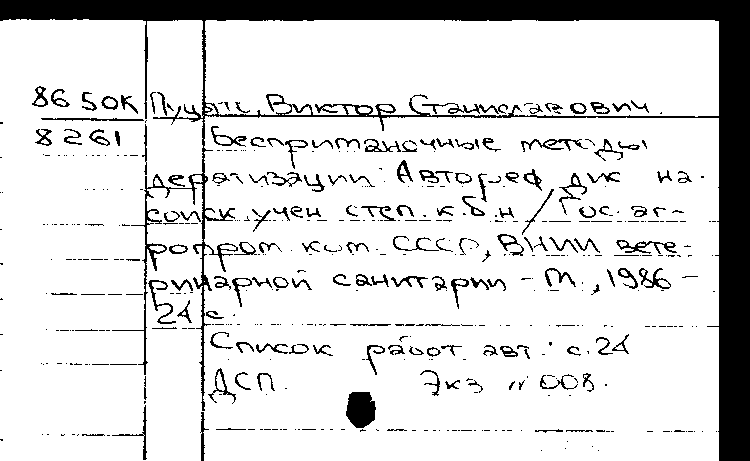 86 50К Пуцатс, Виктор Станиславович.
8261 Бесприманочные методы
дератизации: Автореф дис на
соиск. учен степ. к.б.н / Гос. аг-
ропром. ком. СССР, ВНИИ вете-
ринарной санитарии - М., 1986 -
24 с.
Список работ авт.: с. 24
ДСП. Экз № 008.